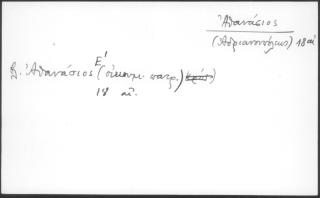 Ἀθανάσιος
(Ἀδριανουπόλεως) 18 αἰ
Β. Ἀθανάσιος Ε΄ (οἰκουμ. πατρ.)
18 αἰ.